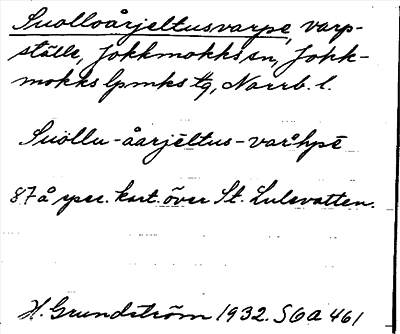 Suolloårjeltusvarpe, varp-
ställe, Jokkmokks sn, Jokk-
mokks lpmks tg, Narrb. l.
Suöllu-åarjēltus-vaŕhpē
87 å spec. kart. över St. Lulevatten.
H. Grundström 1932. SOA 461